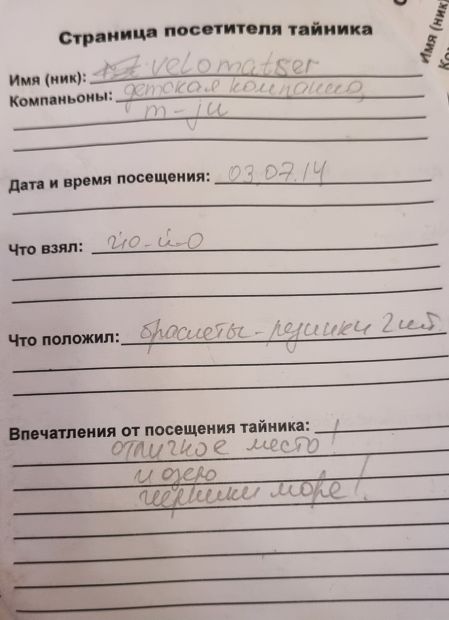 Страница посетителя тайника
Имя (ник): velomatser
Компаньоны: детская компания,
m-ju
Дата и время посещения: 03.07.14
Что взял: йо-й-о
Что положил: браслеты-резинки 2 шт.
Впечатления от посещения тайника:
отличное место!
и озеро
черники море!
Имя (ник